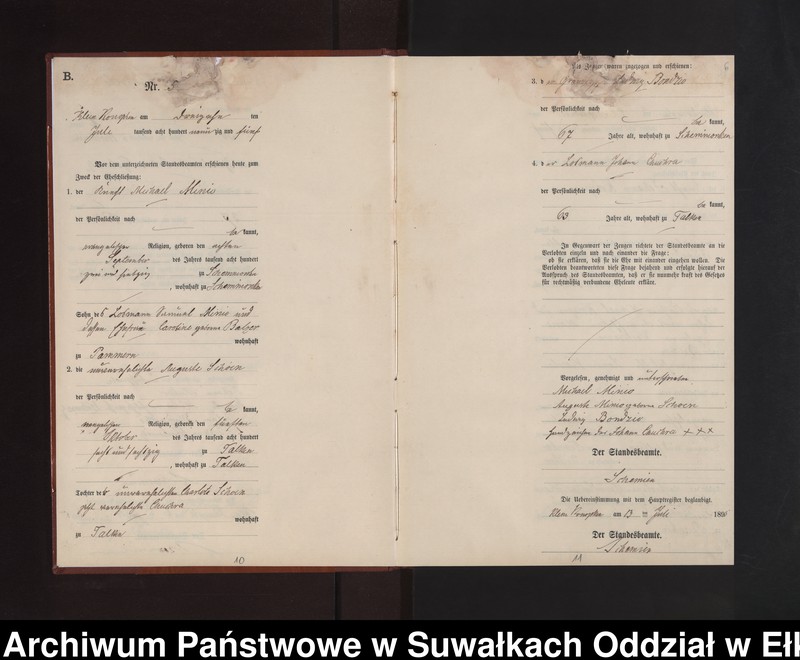 B.
Nr.
Klein Konopken am Dreizehn ten
Juli tausend acht hundert neun zig und fünf
Vor dem unterzeichneten Standesbeamten erschienen heute zum
Zweck der Eheschließung:
1. der Knecht Michael Minio
der Persönlichkeit nach
be kannt,
evangelischer Religion, geboren den achten
September des Jahres tausend acht hundert
zwei und siebzig zu
, wohnhaft zu
Sohn des Losmann Samuel Minio und
dessen Ehefrau Caroline geborene
wohnhaft
zu Pammern
2. die unverehelichte Auguste Schoen
der Persönlichkeit nach
be kannt,
evangelischer Religion, geboren den fünften
Oktober des Jahres tausend acht hundert
sechs und sechszig zu Talken
, wohnhaft zu Talken
Tochter der unverehelichten Charlotte Schoen
jetzt verehelichten
wohnhaft
zu Talken
10
Als Zeugen waren zugezogen und erschienen:
3. d Ludwig Bondzio
der Persönlichkeit nach
be kannt,
67 Jahre alt, wohnhaft zu
4. der Losmann Johann
der Persönlichkeit nach
be kannt,
63 Jahre alt, wohnhaft zu Talken
In Gegenwart der Zeugen richtete der Standesbeamte an die
Verlobten einzeln und nach einander die Frage:
ob sie erklären, daß sie die Ehe mit einander eingehen wollen. Die
Verlobten beantworteten diese Frage bejahend und erfolgte hierauf der
Ausspruch des Standesbeamten, daß er sie nunmehr kraft des Gesetzes
für rechtmäßig verbundene Eheleute erkläre.
Vorgelesen, genehmigt und unterschrieben
Michael Minio
Auguste Minio geborene Schoen
Ludwig Bondzio
Handzeichen des Johann + + +
Der Standesbeamte.
Die Uebereinstimmung mit dem Hauptregister beglaubigt.
Klein Konopken am 13 ten Juli 189
Der Standesbeamte.
11
Archiwum Państwowe w Suwałkach Oddział w Ełk